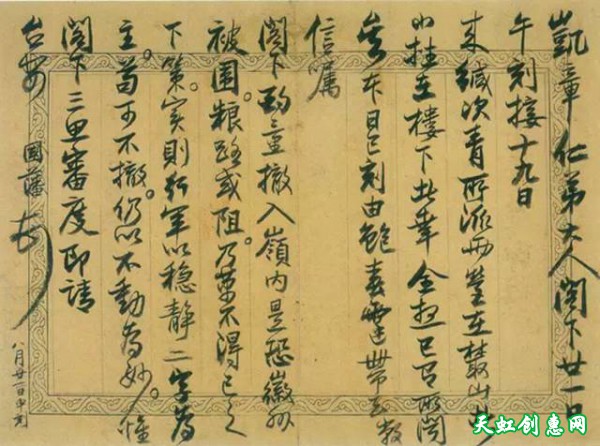 凱章仁弟大人閣下廿一日
午刻接十九日
来緘次青所派两營在叢山
在樓下此 全 已 所闻
本日巳刻由鮑春霆帶去数
信嘱
閣下酌量撤入嶺内是恐徽州
被圍粮路或阻乃萬不得已之
下策实則行軍以穩静二字為
主苟可不撤仍以不動為妙惟
閣下三思審度即請
台安 國藩 頓
八月廿一日申刻
天虹创惠网